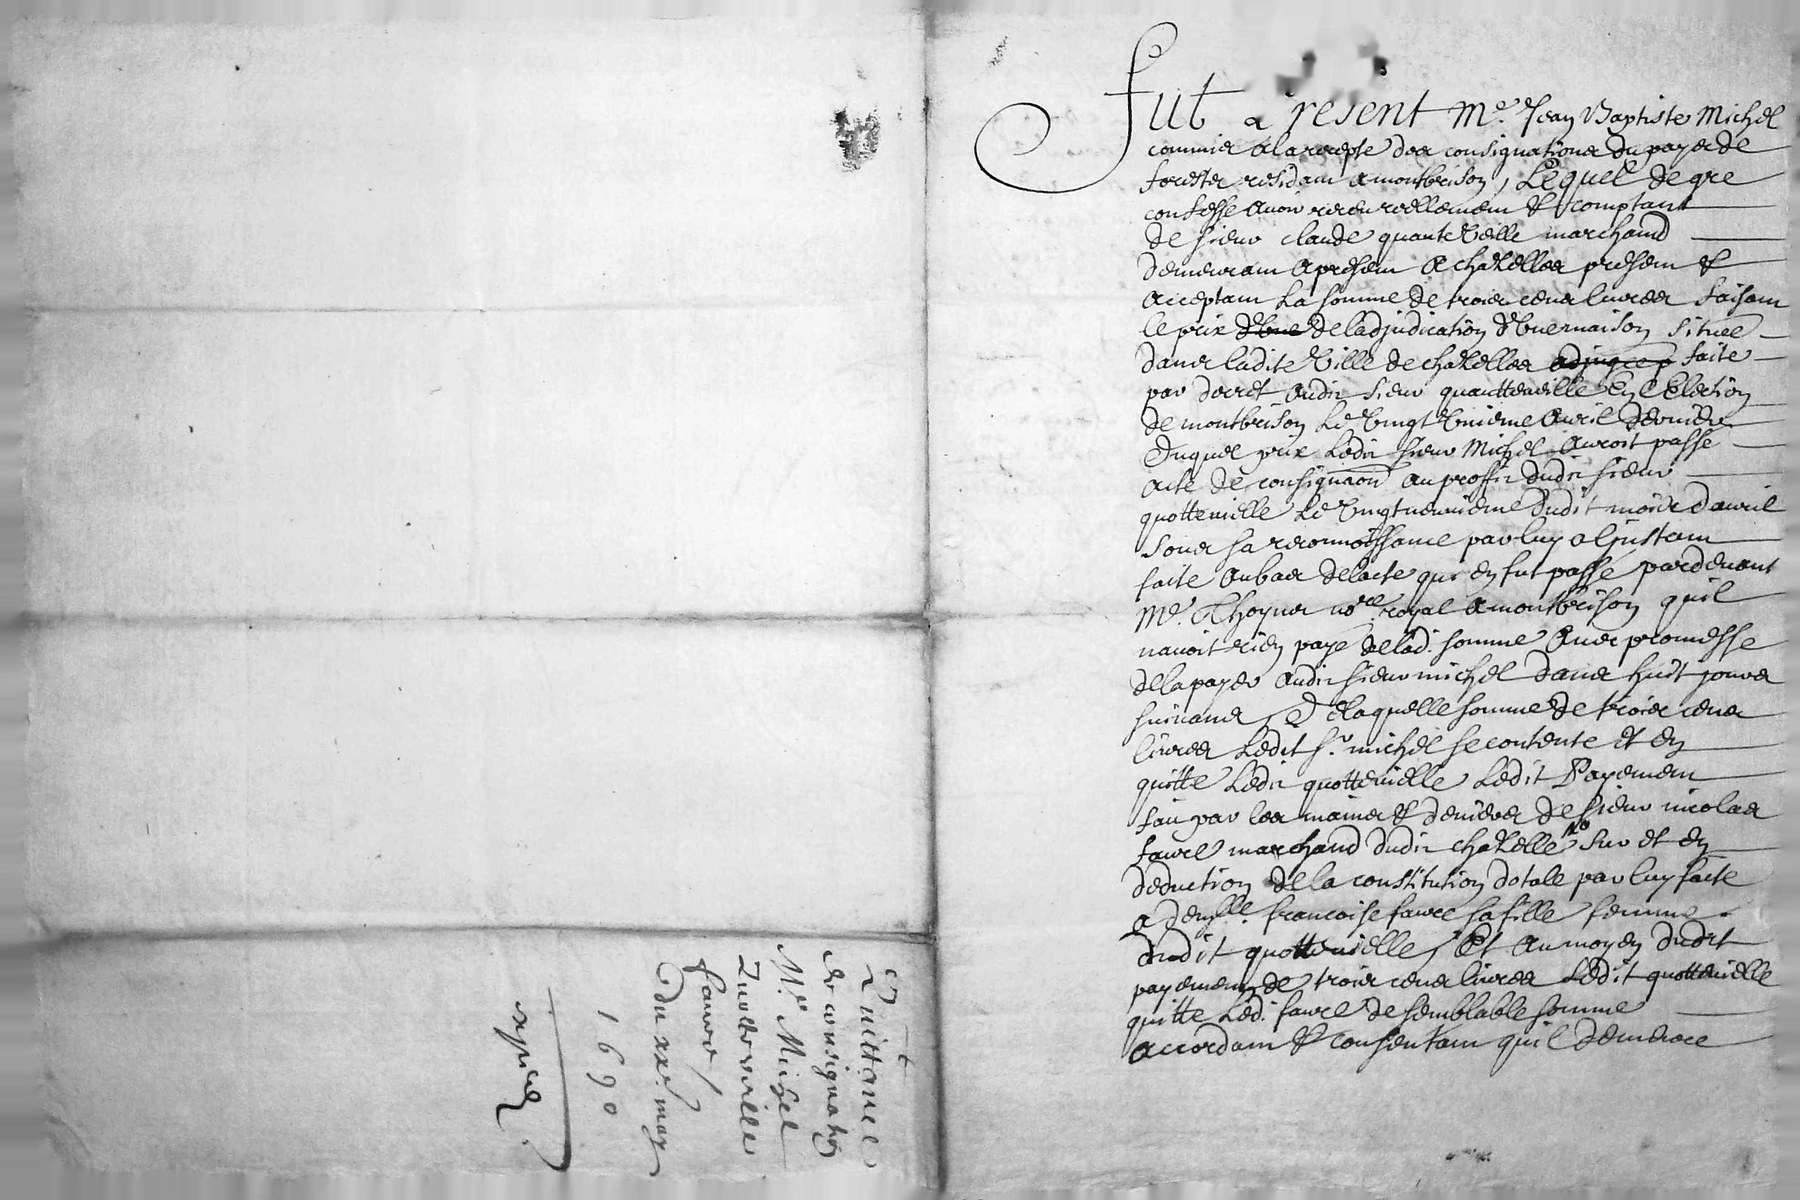 Fut a present Me. Jean Baptiste Michel
commis a la recepte des consignations du payes de
forestz residant a montbrison, Lequel de gre
confesse avoir receu reellement & comptant
de sieur claude quanteveille marchand
demeurant a present a chazelles present &
acceptant La somme de trois cens livres faisant
le prix d'une de ladjudication d'une maison situee
dans ladite ville de chazelles adjugee p faite
par decret audit sieur quantteveille En l'Election
de montbrison Le vingt unieme avril dernier
Duquel prix Ledit sieur Michel auroit passé
acte de consignaon au proffit dudit sieur
quotteuielle Le vingtneuvieme dudit mois d'avril
sous sa reconnoissance par luy a l'instant
faite au bas de lacte qui en fut passé pardevant
Me. Thoynet nore. royal a montbrison quil
navoit rien paye de lad. somme avec promesse
de la payer audit sieur michel dans huit jours
suivans, De laquelle somme de trois cens
livres Ledit sr. michel se contente et en
quitte Ledit quotteuielle Ledit Payement
fait par les mains & deniers de sieur nicolas
faure marchand dudit chazelles sur et en
deduction de la constitution dotale par luy faite
a demlle. francoise faure sa fille femme
dudit quotteuielle, Et au moyen dudit
payement de trois cens livres Ledit quotteuielle
quitte Led. faure de semblable somme
accordant & consentant quil demeure
Quittance
de consignation
Mr. Michel
Quotteveille
faure /
du xxe. may
1690
expedie